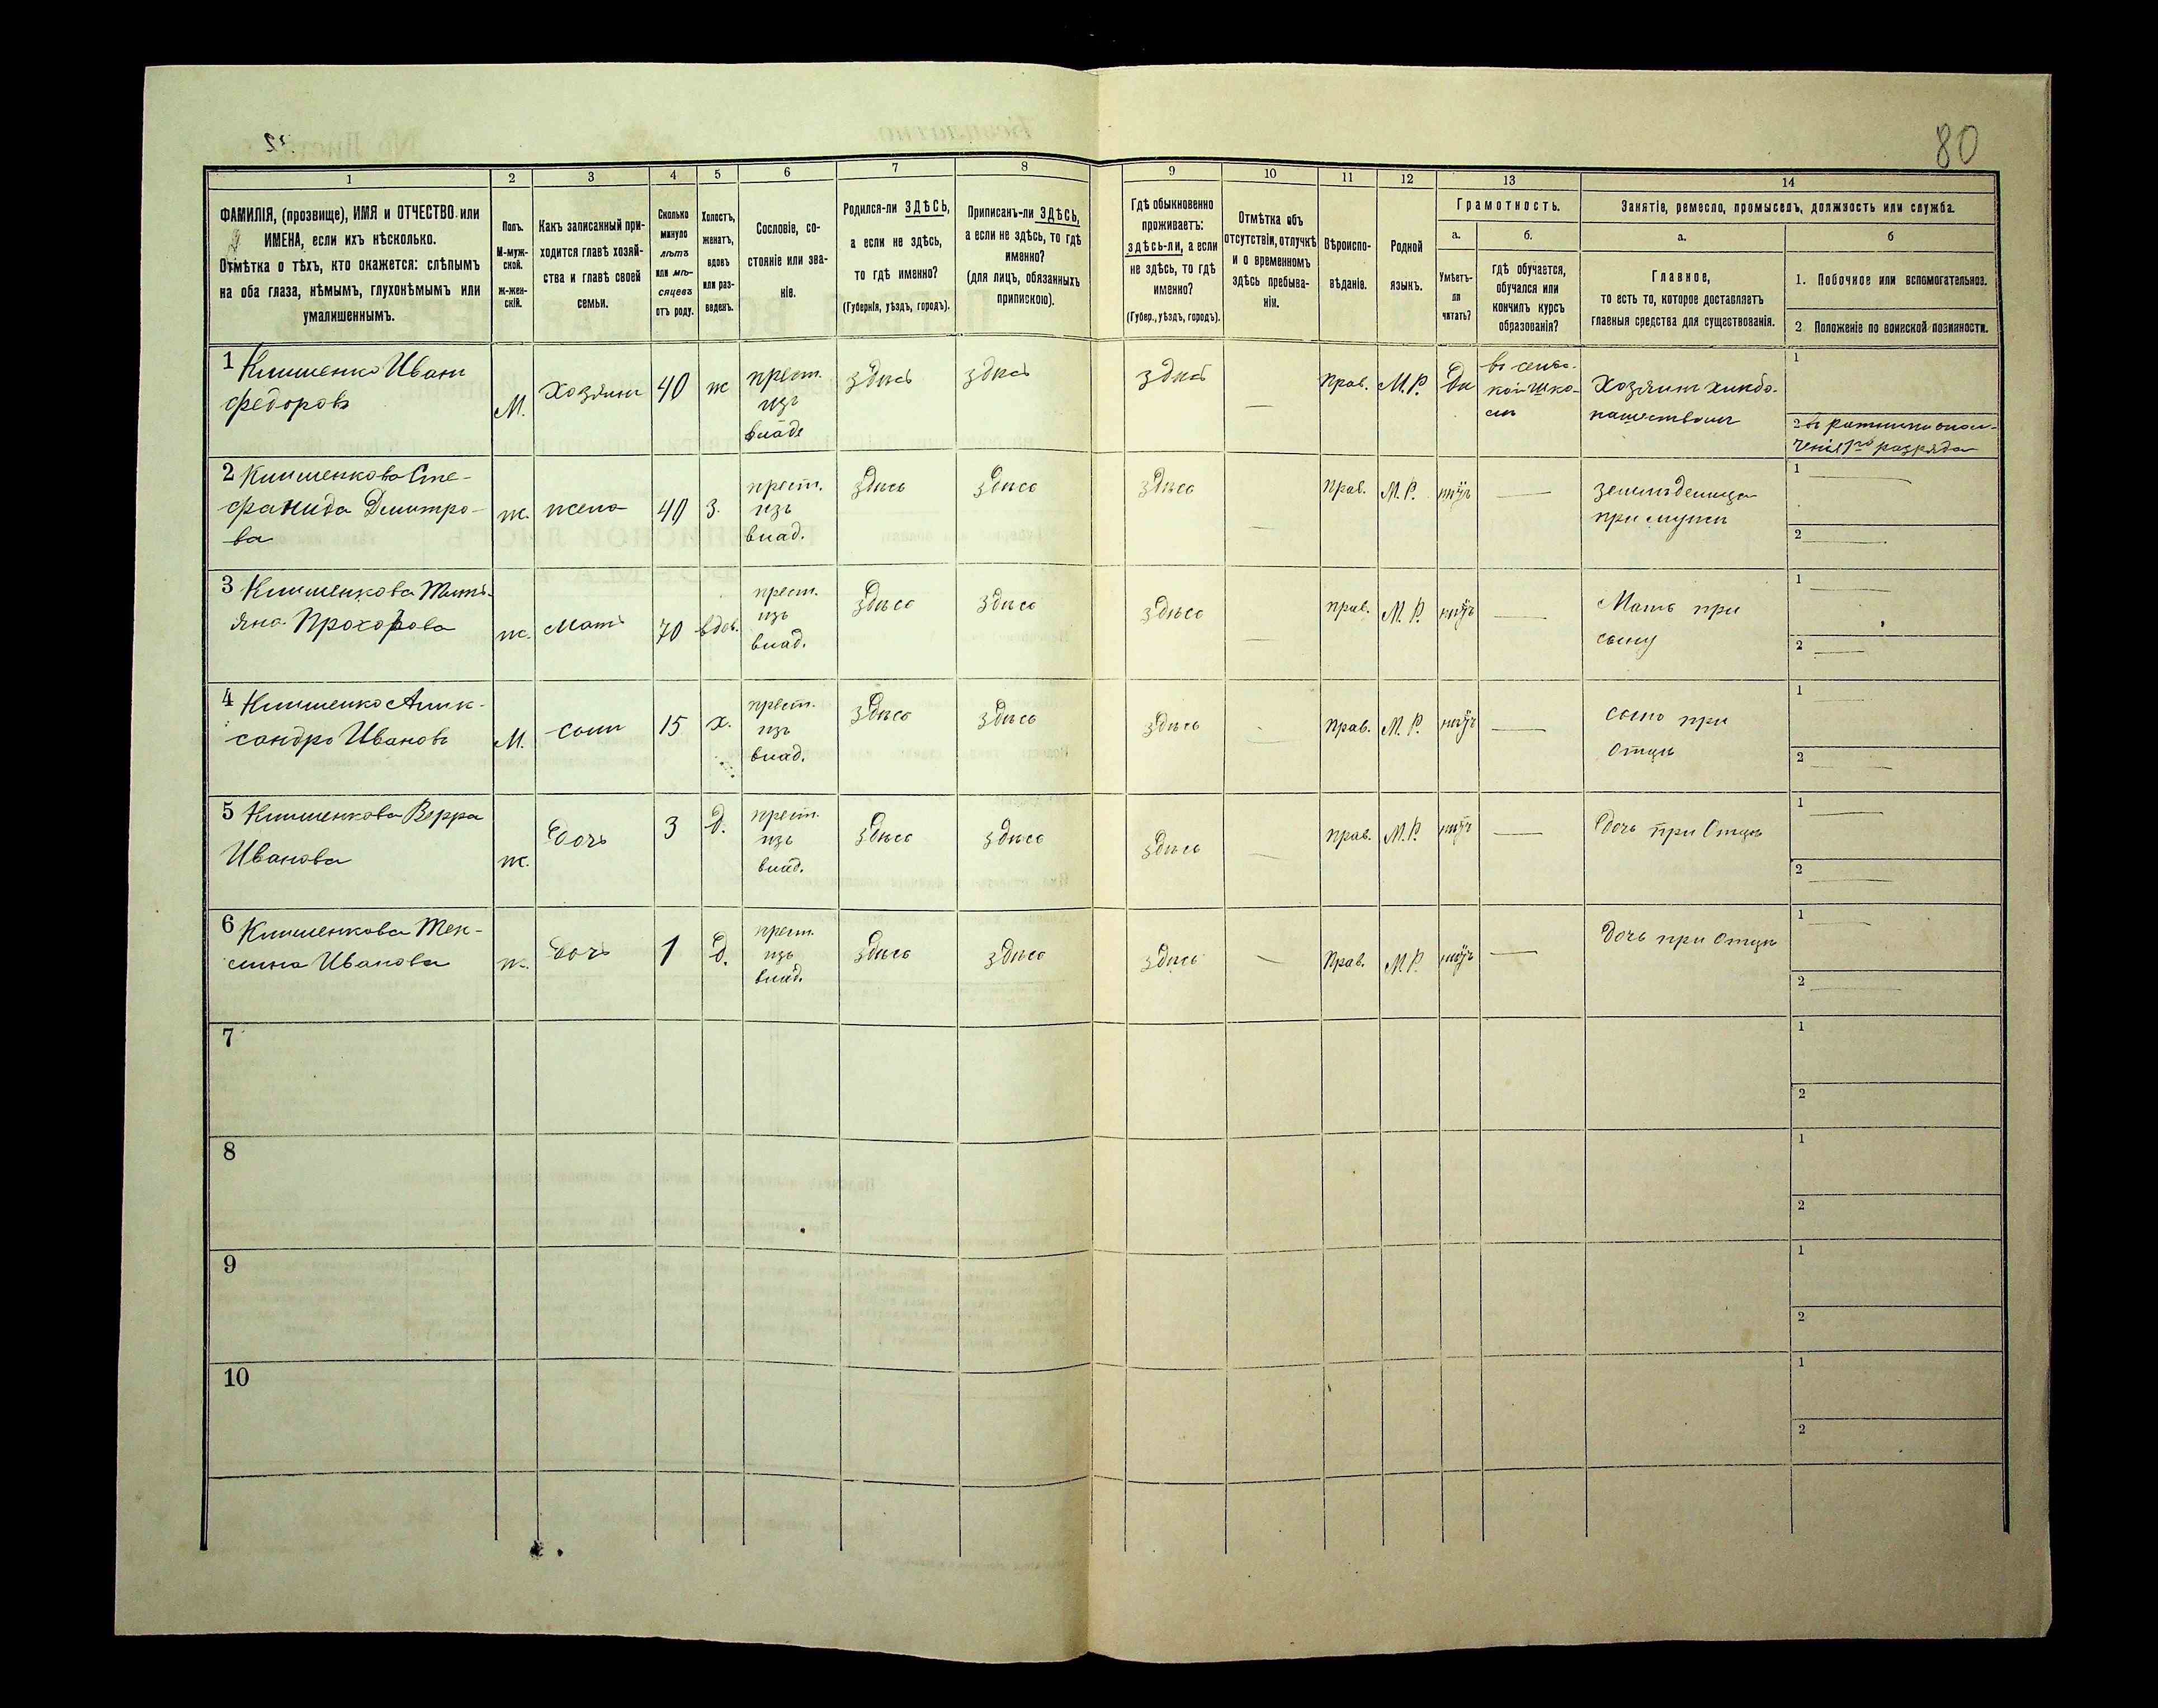 80
1 2 3 4 5 6 7 8 9 10 11 12 13 14
ФАМИЛІЯ, (прозвище), ИМЯ и ОТЧЕСТВО или
ИМЕНА, если ихъ нѣсколько.
Отмѣтка о тѣхъ, кто окажется: слѣпымъ
на оба глаза, нѣмымъ, глухонѣмымъ или
умалишеннымъ.
Полъ.
М-муж-
ской.
ж-жен-
скій.
Какъ записанный при-
ходится главѣ хозяй-
ства и главѣ своей
семьи.
Сколько
минуло
лѣтъ
или мѣ-
сяцевъ
отъ роду.
Холостъ,
женатъ,
вдовъ
или раз-
веденъ.
Сословіе, со-
стояніе или зва-
ніе.
Родился-ли ЗДѢСЬ,
а если не здѣсь,
то гдѣ именно?
(Губернія, уѣздъ, городъ).
Приписанъ-ли ЗДѢСЬ,
а если не здѣсь, то гдѣ
именно?
(для лицъ, обязанныхъ
припискою).
Гдѣ обыкновенно
проживаетъ:
здѣсь-ли, а если
не здѣсь, то гдѣ
именно?
(Губер., уѣздъ, городъ).
Отмѣтка объ
отсутствіи, отлучкѣ
и о временномъ
здѣсь пребыва-
ніи.
Вѣроиспо-
вѣданіе.
Родной
языкъ.
Грамотность.
а.
Умѣетъ-
ли
читать?
б.
гдѣ обучается,
обучался или
кончилъ курсъ
образованія?
Занятіе, ремесло, промыселъ, должность или служба.
а.
Главное,
то есть то, которое доставляетъ
главныя средства для существованія.
б
1. Побочное или вспомогательное.
2 Положеніе по воинской повинности.
1 Иванъ
Федоровъ
М.
Хозяинъ
40
ж
крест.
изъ
владе
здѣсь
здѣсь
здѣсь
—
Прав.
М.Р.
Да
въ сельс-
кой шко-
лѣ
Хозяинъ хлѣбо-
пашествомъ
1
2 въ ратники опол-
ченія 1го разряда
2 Сте-
фанида Дмитро-
ва
ж.
жена
40
З.
крест.
изъ
влад.
здѣсь
здѣсь
здѣсь
—
Прав.
М.Р.
нѣтъ
—
земледелица
при мужѣ
1 —
2 —
3 Тать-
яна Прохорова
ж.
Мать
70
вдов.
крест.
изъ
влад.
здѣсь
здѣсь
здѣсь
—
прав.
М.Р.
нѣтъ
—
Мать при
сыну
1 —
2 —
4 Алек-
сандръ Ивановъ
М.
сынъ
15
х.
крест.
изъ
влад.
здѣсь
здѣсь
здѣсь
—
Прав.
М.Р.
нѣтъ
—
сынъ при
Отцѣ
1 —
2 —
5 Верра
Иванова
ж.
Дочь
3
Д.
крест.
изъ
влад.
здѣсь
здѣсь
здѣсь
—
прав.
М.Р.
нѣтъ
—
Дочь при Отцѣ
1 —
2 —
6
Иванова
ж.
Дочь
1
Д.
крест.
изъ
влад.
здѣсь
здѣсь
здѣсь
—
Прав.
М.Р.
нѣтъ
—
Дочь при Отцѣ
1 —
2 —
7
1
2
8
1
2
9
1
2
10
1
2